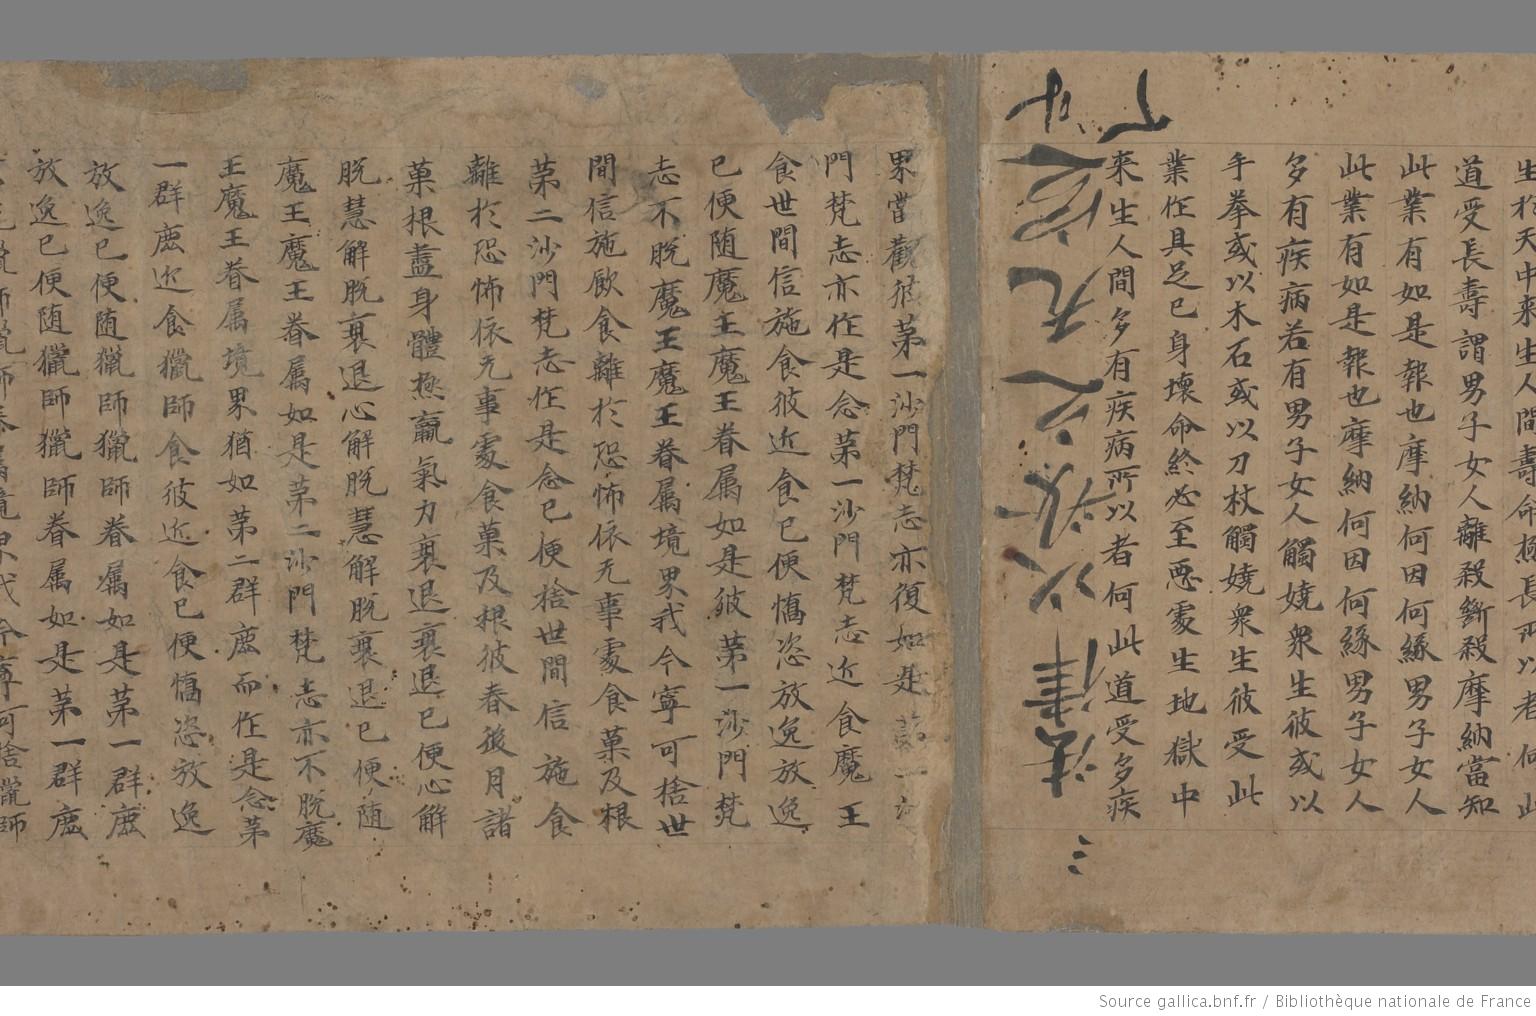 生於天中来生人間壽命極長所以者何此
道受長壽謂男子女人離殺斷殺摩納當知
此業有如是報也摩納何因何緣男子女人
此業有如是報也摩納何因何緣男子女人
多有疾病若有男子女人觸嬈衆生彼或以
手拳或以木石或以刀杖觸嬈衆生彼受此
業作具足已身壞命終必至惡處生地獄中
来生人間多有疾病所以者何此道受多疾
三
界當觀彼苐一沙門梵志亦復如是
門梵志亦作是念苐一沙門梵志近食魔王
食世間信施食彼近食已便憍恣放逸放逸
已便随魔王魔王眷属如是彼苐一沙門梵
志不脫魔王魔王眷属境界我今寧可捨世
間信施飲食離於恐怖依无事處食菓及根
苐二沙門梵志作是念已便捨世間信施食
離於恐怖依无事處食菓及根彼春後月諸
菓根盡身體極羸氣力衰退衰退已便心解
脫慧解脫衰退心解脫慧解脫衰退已便随
魔王魔王眷属如是苐二沙門梵志亦不脫魔
王魔王眷属境界猶如苐二群鹿而作是念苐
一群鹿近食獵師食彼近食已便憍恣放逸
放逸已便随獵師獵師眷属如是苐一群鹿
放逸已便随獵師獵師眷属如是苐一群鹿
Source gallica.bnf.fr / Bibliothèque nationale de France